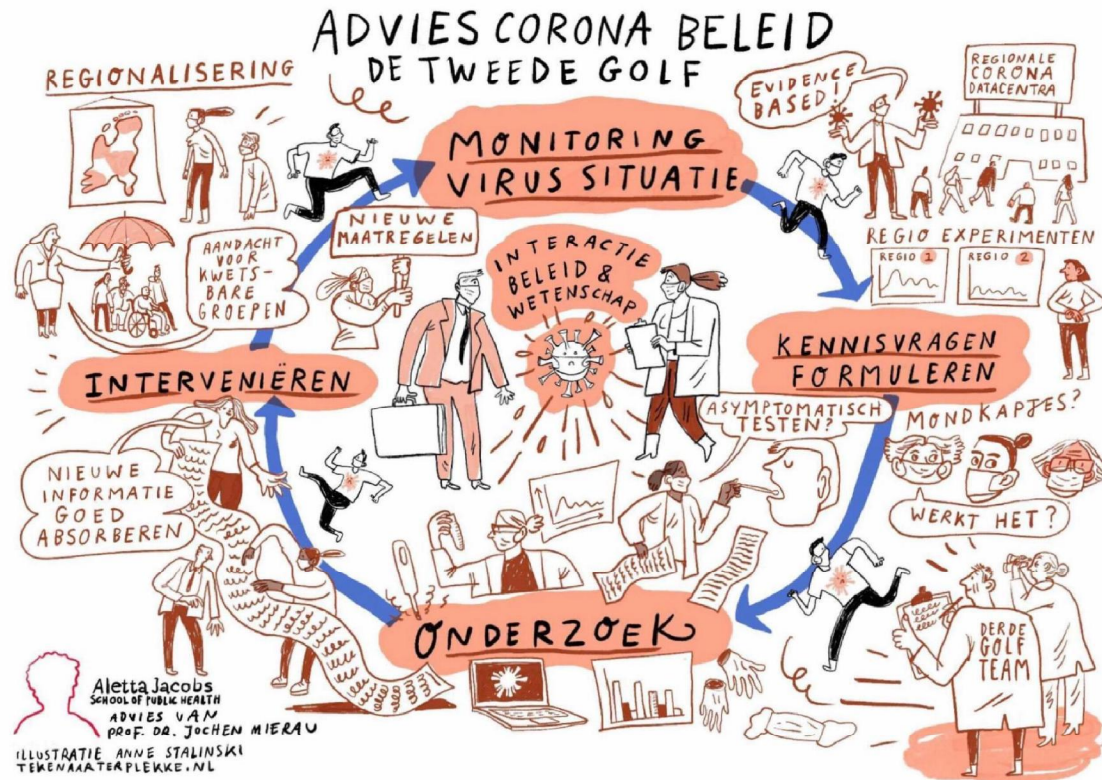 ADVIES CORONA BELEID
DE TWEEDE GOLF
REGIONALISERING
EVIDENCE
BASED!
REGIONALE
CORONA
DATACENTRA
MONITORING
VIRUS SITUATIE
NIEUWE
MAATREGELEN
AANDACHT
VOOR
KWETS-
BARE
GROEPEN
INTERACTIE
BELEID &
WETENSCHAP
REGIO EXPERIMENTEN
REGIO 1
REGIO 2
INTERVENIËREN
KENNISVRAGEN
FORMULEREN
ASYMPTOMATISCH
TESTEN?
MONDKAPJES?
WERKT HET?
NIEUWE
INFORMATIE
GOED
ABSORBEREN
ONDERZOEK
DERDE
GOLF
TEAM
Aletta Jacobs
SCHOOL OF PUBLIC HEALTH
ADVIES VAN
PROF. DR. JOCHEN MIERAU
ILLUSTRATIE ANNE STALINSKI
TEKENAARTERPLEKKE.NL